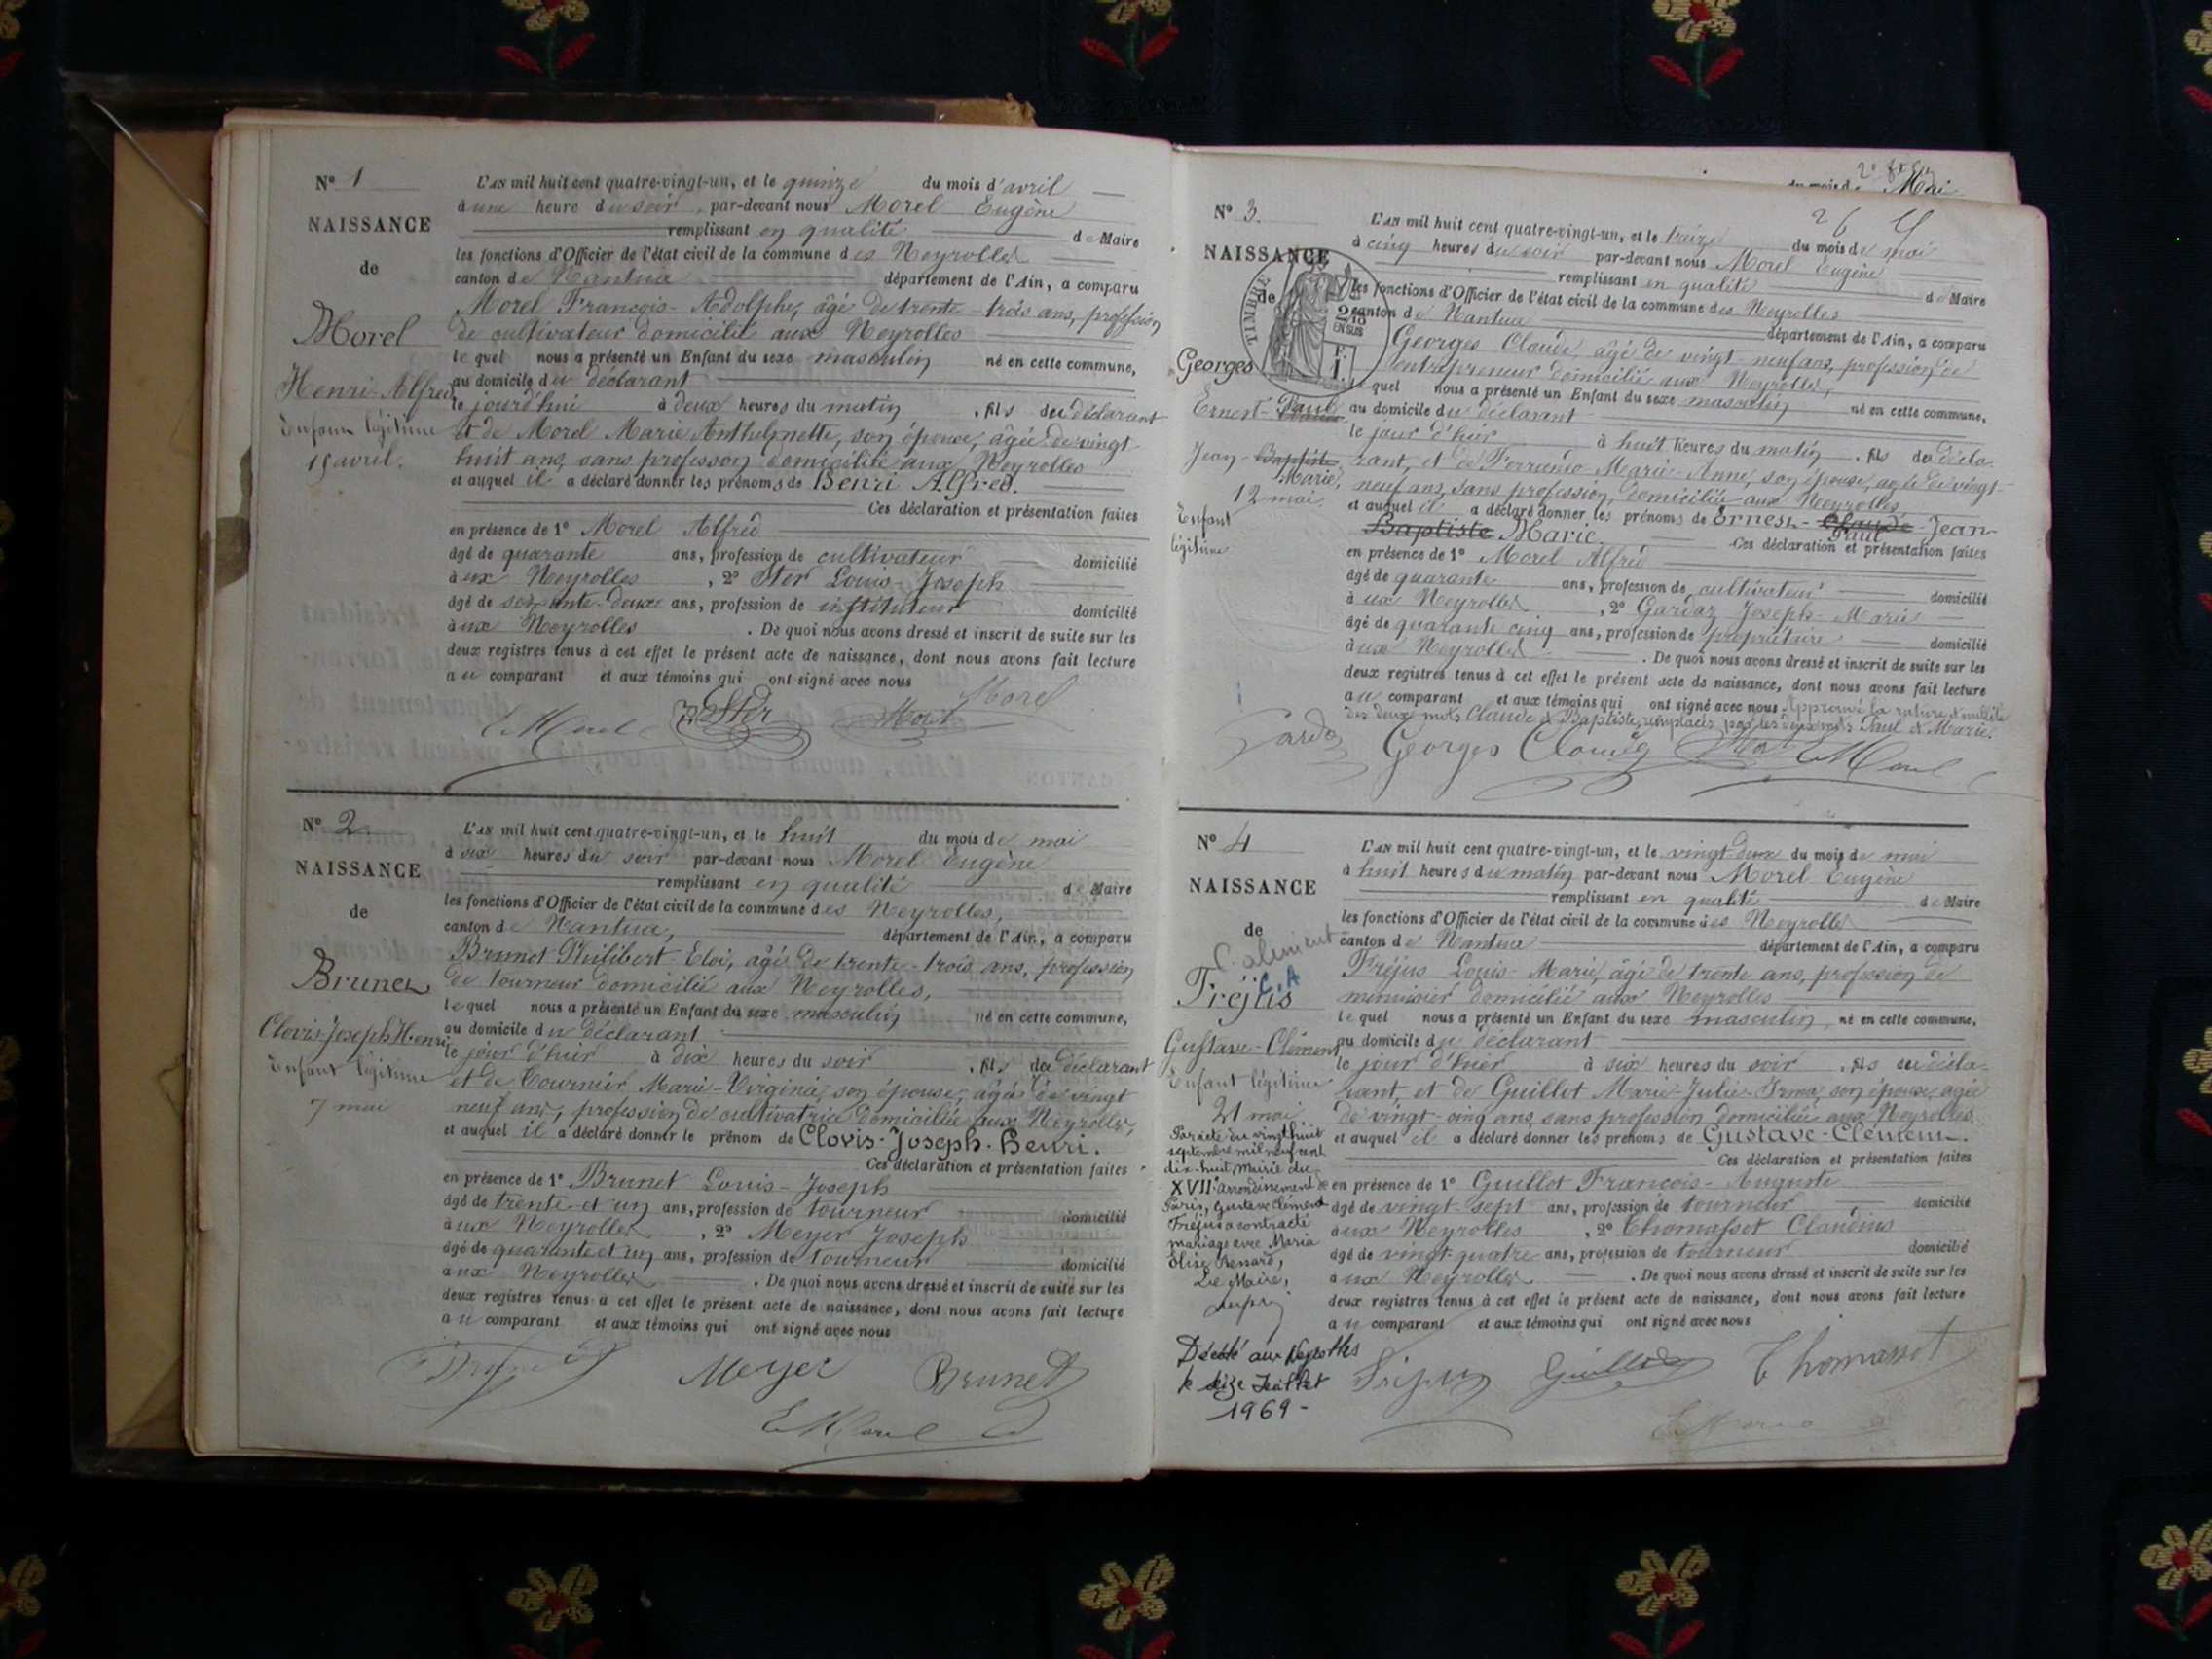 N° 1
NAISSANCE
de
Morel
Henri-Alfred
Enfant légitime
15 avril.
L'AN mil huit cent quatre-vingt-un, et le quinze du mois d'avril
à une heure du soir, par-devant nous Morel Eugène
remplissant en qualité de Maire
les fonctions d'Officier de l'état civil de la commune des Neyrolles
canton de Nantua département de l'Ain, a comparu
Morel François-Adolphe, âgé de trente-trois ans, profession
de cultivateur domicilié aux Neyrolles
lequel nous a présenté un Enfant du sexe masculin né en cette commune,
au domicile du déclarant
le jourd'hui à deux heures du matin, fils du déclarant
et de Morel Marie Anthelmette, son épouse, âgée de vingt-
huit ans, sans profession domicilié aux Neyrolles
et auquel il a déclaré donner les prénoms de Henri Alfred.
Ces déclaration et présentation faites
en présence de 1° Morel Alfred
âgé de quarante ans, profession de cultivateur domicilié
aux Neyrolles, 2° Ster Louis-Joseph
âgé de soixante-deux ans, profession de instituteur domicilié
aux Neyrolles. De quoi nous avons dressé et inscrit de suite sur les
deux registres tenus à cet effet le présent acte de naissance, dont nous avons fait lecture
au comparant et aux témoins qui ont signé avec nous
Morel
E Morel Ster Morel
N° 2.
NAISSANCE
de
Brunet
Clovis Joseph Henri
Enfant légitime
7 mai
L'AN mil huit cent quatre-vingt-un, et le huit du mois de mai
à six heures du soir par-devant nous Morel Eugène
remplissant en qualité de Maire
les fonctions d'Officier de l'état civil de la commune des Neyrolles,
canton de Nantua, département de l'Ain, a comparu
Brunet Philibert-Eloi, âgé de trente-trois ans, profession
de tourneur domicilié aux Neyrolles,
lequel nous a présenté un Enfant du sexe masculin né en cette commune,
au domicile du déclarant
le jour d'hier à dix heures du soir, fils du déclarant
et de Tournier Marie-Virginie, son épouse, âgée de vingt
neuf ans, profession de cultivatrice domiciliée aux Neyrolles,
et auquel il a déclaré donner le prénom de Clovis-Joseph-Henri.
Ces déclaration et présentation faites
en présence de 1° Brunet Louis-Joseph
âgé de trente-et un ans, profession de tourneur domicilié
aux Neyrolles, 2° Meyer Joseph
âgé de quarante et un ans, profession de tourneur domicilié
aux Neyrolles. De quoi nous avons dressé et inscrit de suite sur les
deux registres tenus à cet effet le présent acte de naissance, dont nous avons fait lecture
au comparant et aux témoins qui ont signé avec nous
Brunet Meyer Brunet
E Morel
Mai
N° 3.
NAISSANCE
de
TIMBRE
EN SUS
Georges
Ernest-Paul
Jean-Baptiste
Marie,
12 mai.
Enfant
légitime
26
L'AN mil huit cent quatre-vingt-un, et le treize du mois de mai
à cinq heures du soir par-devant nous Morel Eugène
remplissant en qualité de Maire
les fonctions d'Officier de l'état civil de la commune des Neyrolles
canton de Nantua département de l'Ain, a comparu
Georges Claude, âgé de vingt-neuf ans, profession de
entrepreneur domicilié aux Neyrolles,
lequel nous a présenté un Enfant du sexe masculin né en cette commune,
au domicile du déclarant
le jour d'hier à huit heures du matin, fils du décla-
rant, et de Marie-Anne, son épouse, agée de vingt-
neuf ans, sans profession, domiciliée aux Neyrolles
et auquel il a déclaré donner les prénoms de Ernest-Claude-Jean-
Paul
Baptiste Marie. Ces déclaration et présentation faites
en présence de 1° Morel Alfred
âgé de quarante ans, profession de cultivateur domicilié
aux Neyrolles, 2° Gardaz Joseph-Marie
âgé de quarante cinq ans, profession de propriétaire domicilié
aux Neyrolles. De quoi nous avons dressé et inscrit de suite sur les
deux registres tenus à cet effet le présent acte de naissance, dont nous avons fait lecture
au comparant et aux témoins qui ont signé avec nous Approuvé la rature et nullité
des deux mots Claude & Baptiste, remplacés par les deux mots Paul & Marie.
Gardaz Georges Claude E Morel
N° 4
NAISSANCE
de
C.A
Fréjus
Gustave-Clément
Enfant légitime
21 mai
Par acte du vingt huit
septembre mil neuf cent
dix-huit Mairie du
XVII° arrondissement de
Paris, Gustave Clément
Fréjus a contracté
mariage avec Maria
Elise Renard,
Le Maire,
Décédé aux Neyrolles
le seize Juillet
1969-
L'AN mil huit cent quatre-vingt-un, et le vingt-deux du mois de mai
à huit heures du matin par-devant nous Morel Eugène
remplissant en qualité de Maire
les fonctions d'Officier de l'état civil de la commune des Neyrolles
canton de Nantua département de l'Ain, a comparu
Fréjus Louis-Marie, âgé de trente ans, profession de
menuisier domicilié aux Neyrolles
lequel nous a présenté un Enfant du sexe masculin, né en cette commune,
au domicile du déclarant
le jour d'hier à six heures du soir, fils du décla-
rant, et de Guillot Marie-Julie-Irma, son épouse, agée
de vingt-cinq ans, sans profession domiciliée aux Neyrolles
et auquel il a déclaré donner les prénoms de Gustave-Clément.
Ces déclaration et présentation faites
en présence de 1° Guillot François-Auguste
âgé de vingt-sept ans, profession de tourneur domicilié
aux Neyrolles, 2° Thomasset Claudius
âgé de vingt-quatre ans, profession de tourneur domicilié
aux Neyrolles. De quoi nous avons dressé et inscrit de suite sur les
deux registres tenus à cet effet le présent acte de naissance, dont nous avons fait lecture
au comparant et aux témoins qui ont signé avec nous
Fréjus Guillot Thomasset
E Morel